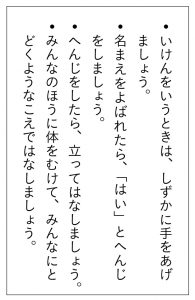 ●いけんをいうときは、しずかに手をあげ
ましょう。
●名まえをよばれたら、「はい」とへんじ
をしましょう。
●へんじをしたら、立ってはなしましょう。
●みんなのほうに体をむけて、みんなにと
どくようなこえではなしましょう。